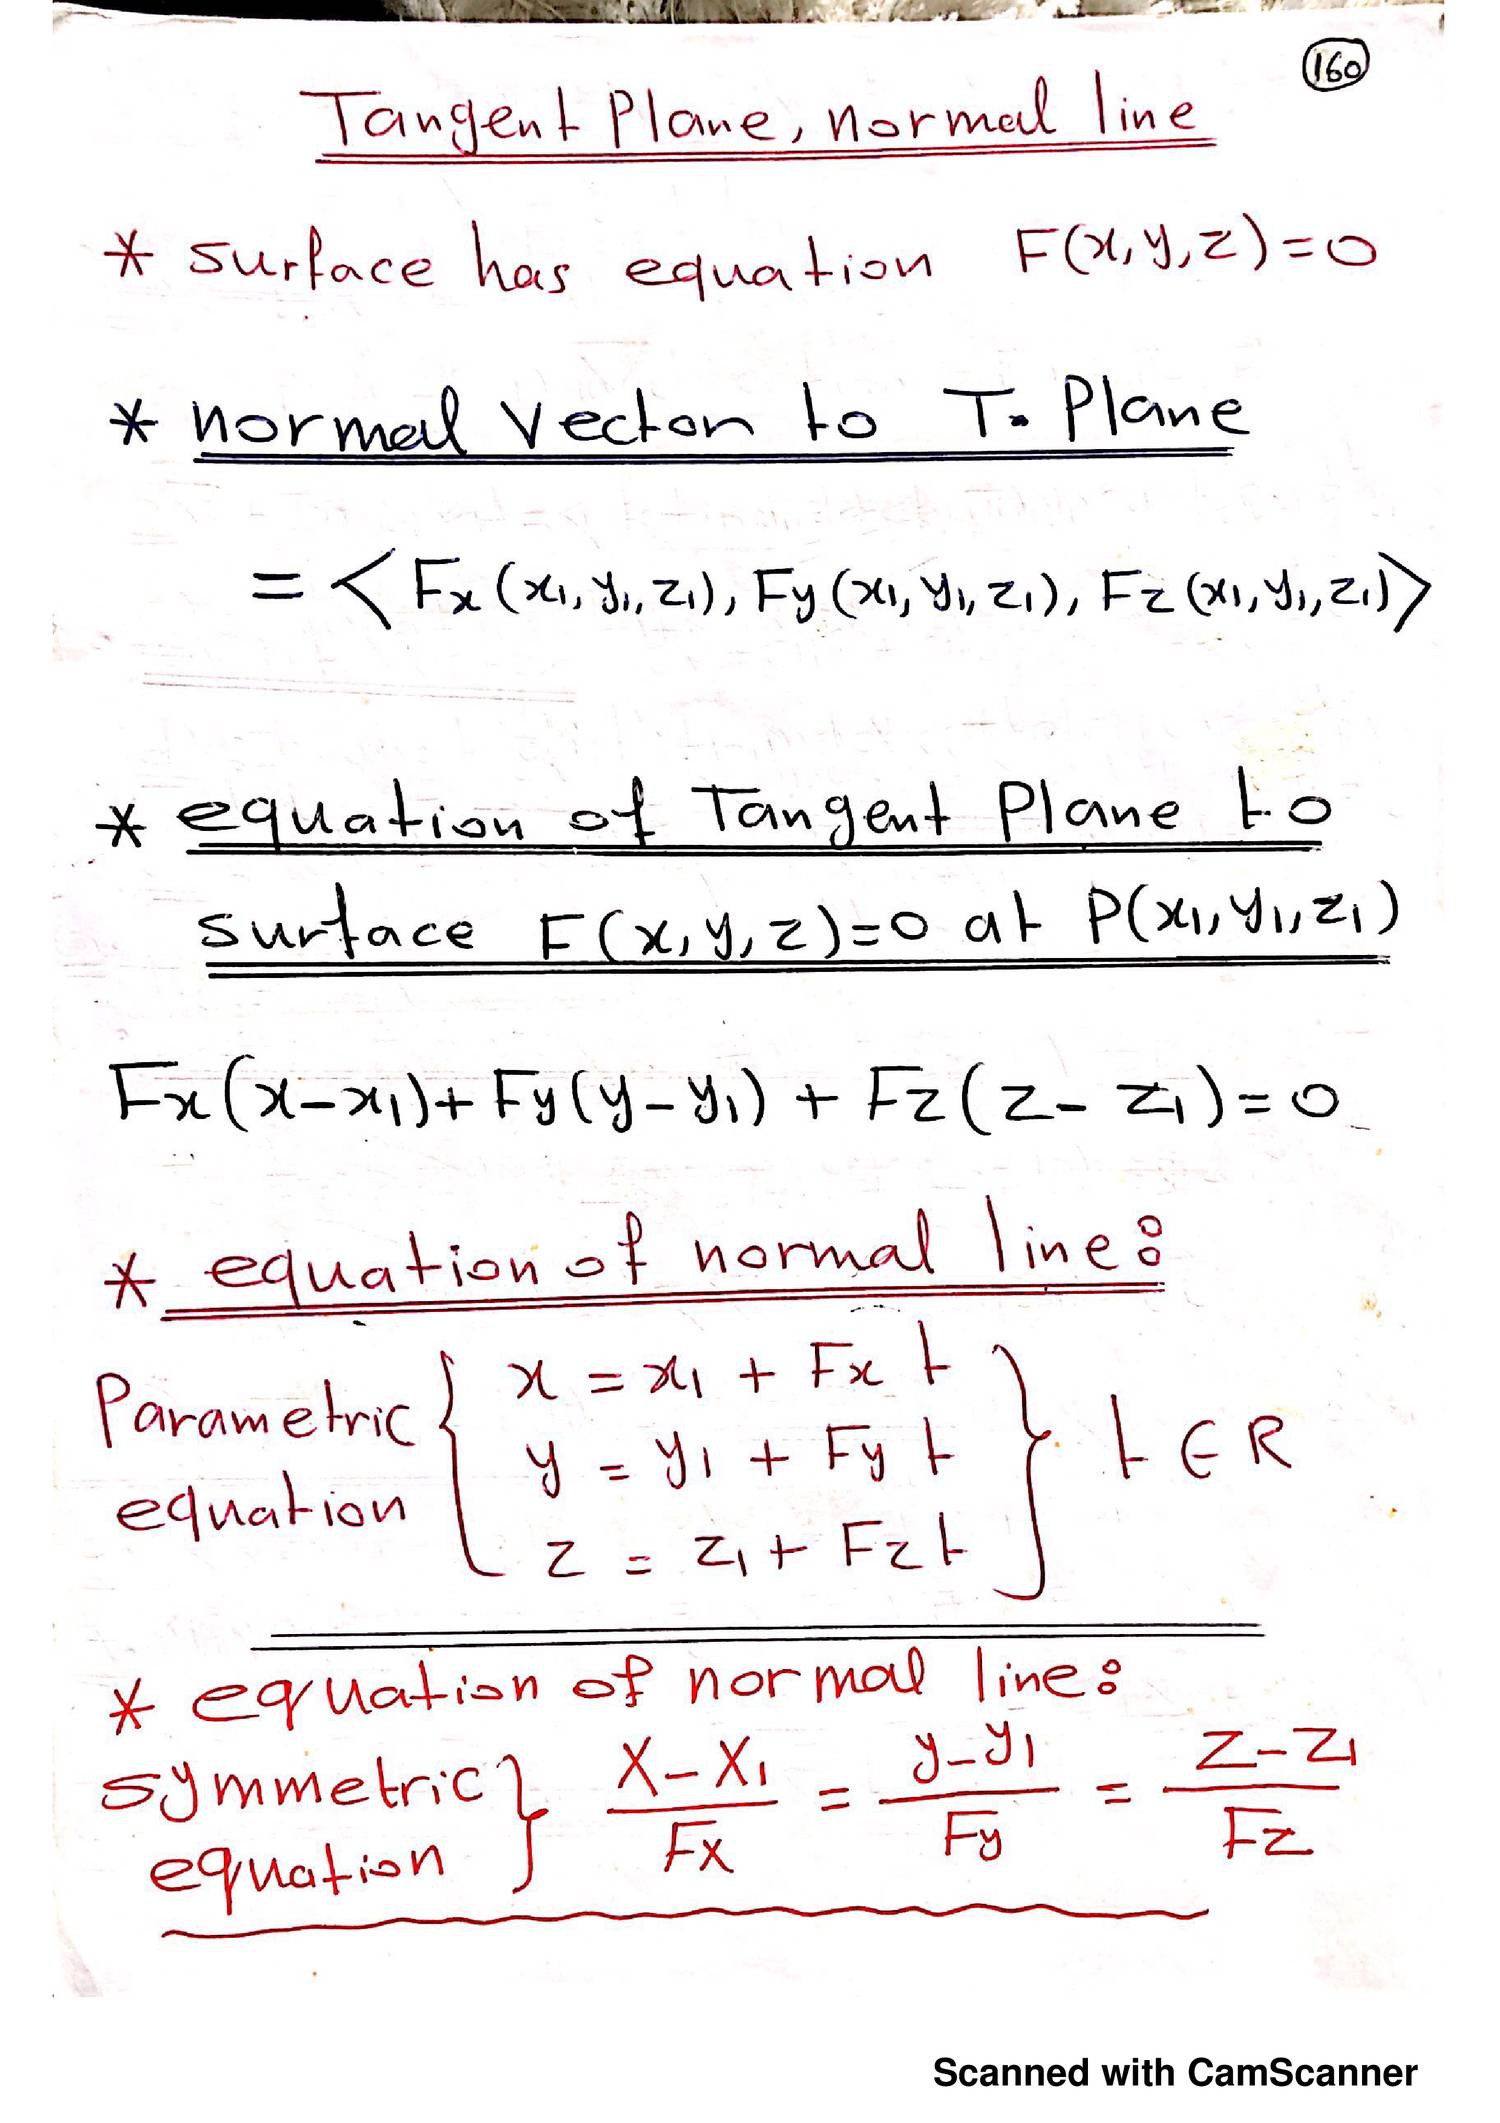 160
Tangent Plane, normal line
* surface has equation F(x,y,z)=0
* normal vector to T. Plane
= <Fx(x₁,y₁,z₁), Fy(x₁,y₁,z₁), Fz(x₁,y₁,z₁)>
* equation of Tangent Plane to
surface F(x,y,z)=0 at P(x₁,y₁,z₁)
Fx(x-x₁)+Fy(y-y₁)+Fz(z-z₁)=0
* equation of normal line:
Parametric equation { x = x₁ + Fx t
y = y₁ + Fy t
z = z₁ + Fz t } t ∈ R
* equation of normal line:
symmetric equation } X-X₁/Fx = y-y₁/Fy = z-z₁/Fz
Scanned with CamScanner